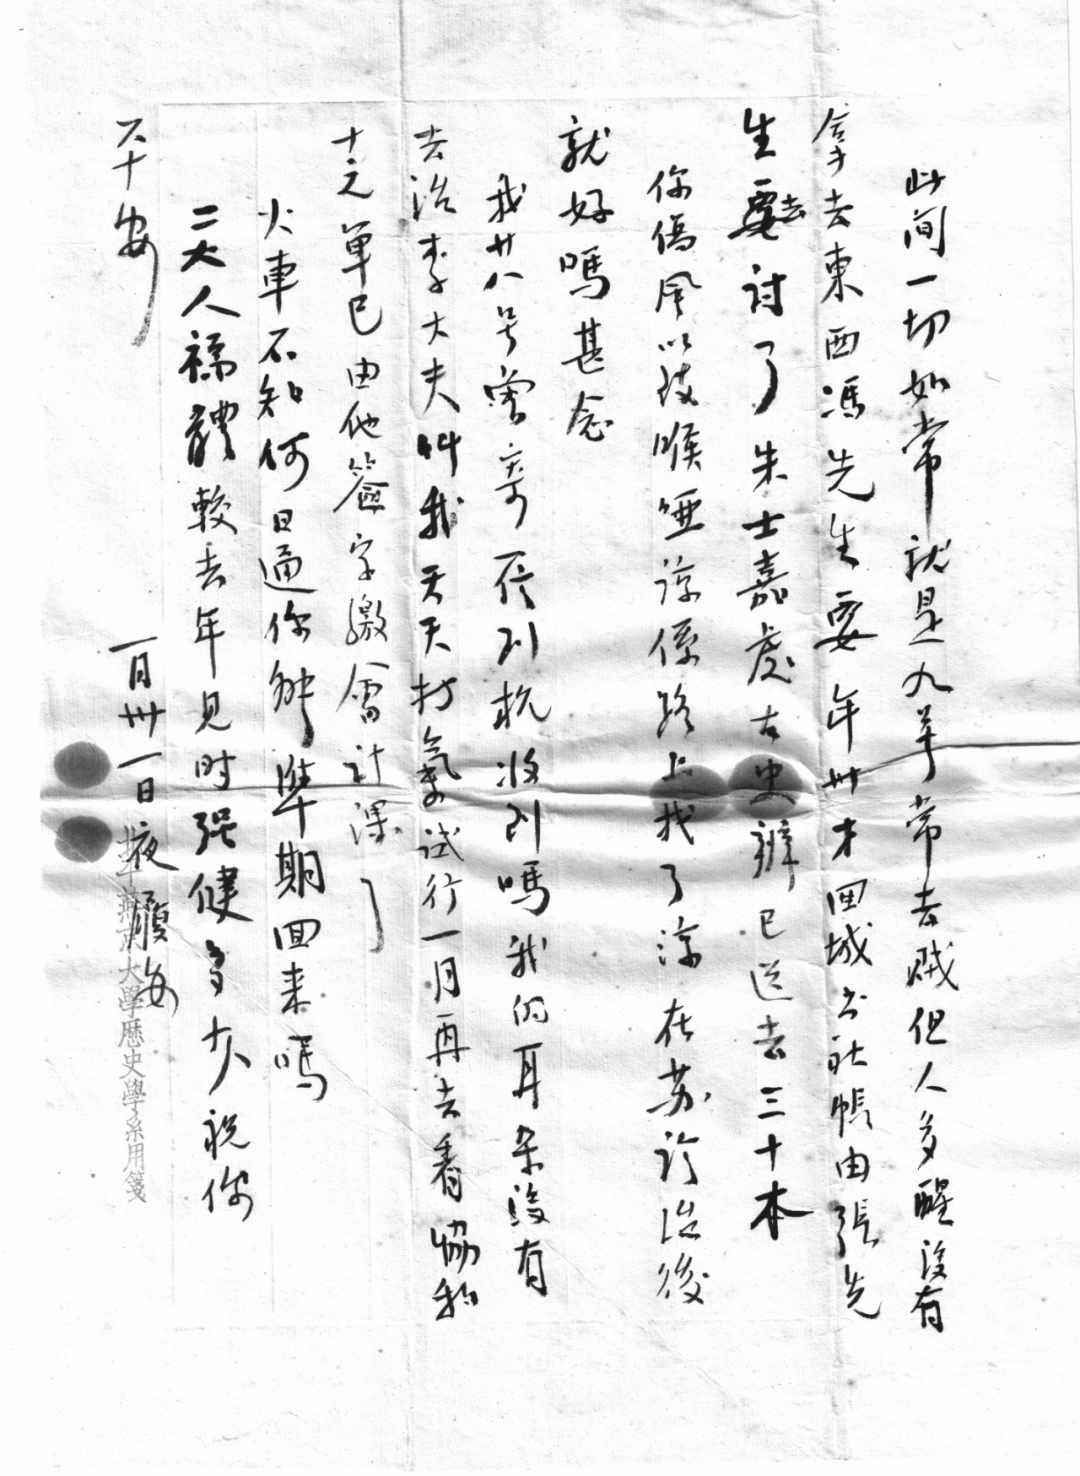 此间一切如常就是九爷常去贼但人多醒没有
拿去东西冯先生要年卅才回城书社帳由張先
生要去討了朱士嘉處古史辨已送去三十本
你伤風以致喉哑諒係路上找了涼在苏診治後
就好嗎甚念
我廿八号曾寄信到杭收到嗎我的耳朵没有
去治李大夫叫我天天打氣试行一月再去看協和
十元單已由他簽字繳會計課了
火車不知何日通你能準期回来嗎
二大人福體較去年見时强健多少祝你
安
一月卅一日夜 履安
大學歷史學系用箋